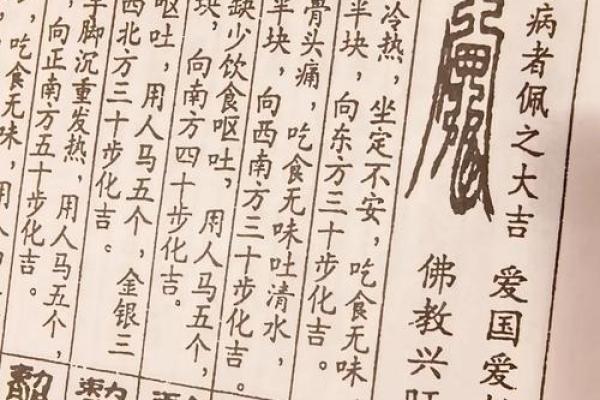 病者佩之大吉 爱国爱
佛教兴旺
冷热，坐定不安，吃食无味
半块，向东方三十步化吉。
骨头痛，吃食无味吐清水，
半块，向西南方三十步化吉。
缺少饮食呕吐，用人马五个，
块，向南方四十步化吉。
呕吐，用人马五个，金银三
西北方三十步化吉。
手脚沉重发热，用人马五个，
，向正南方五十步化吉。
，吃食无味，用人